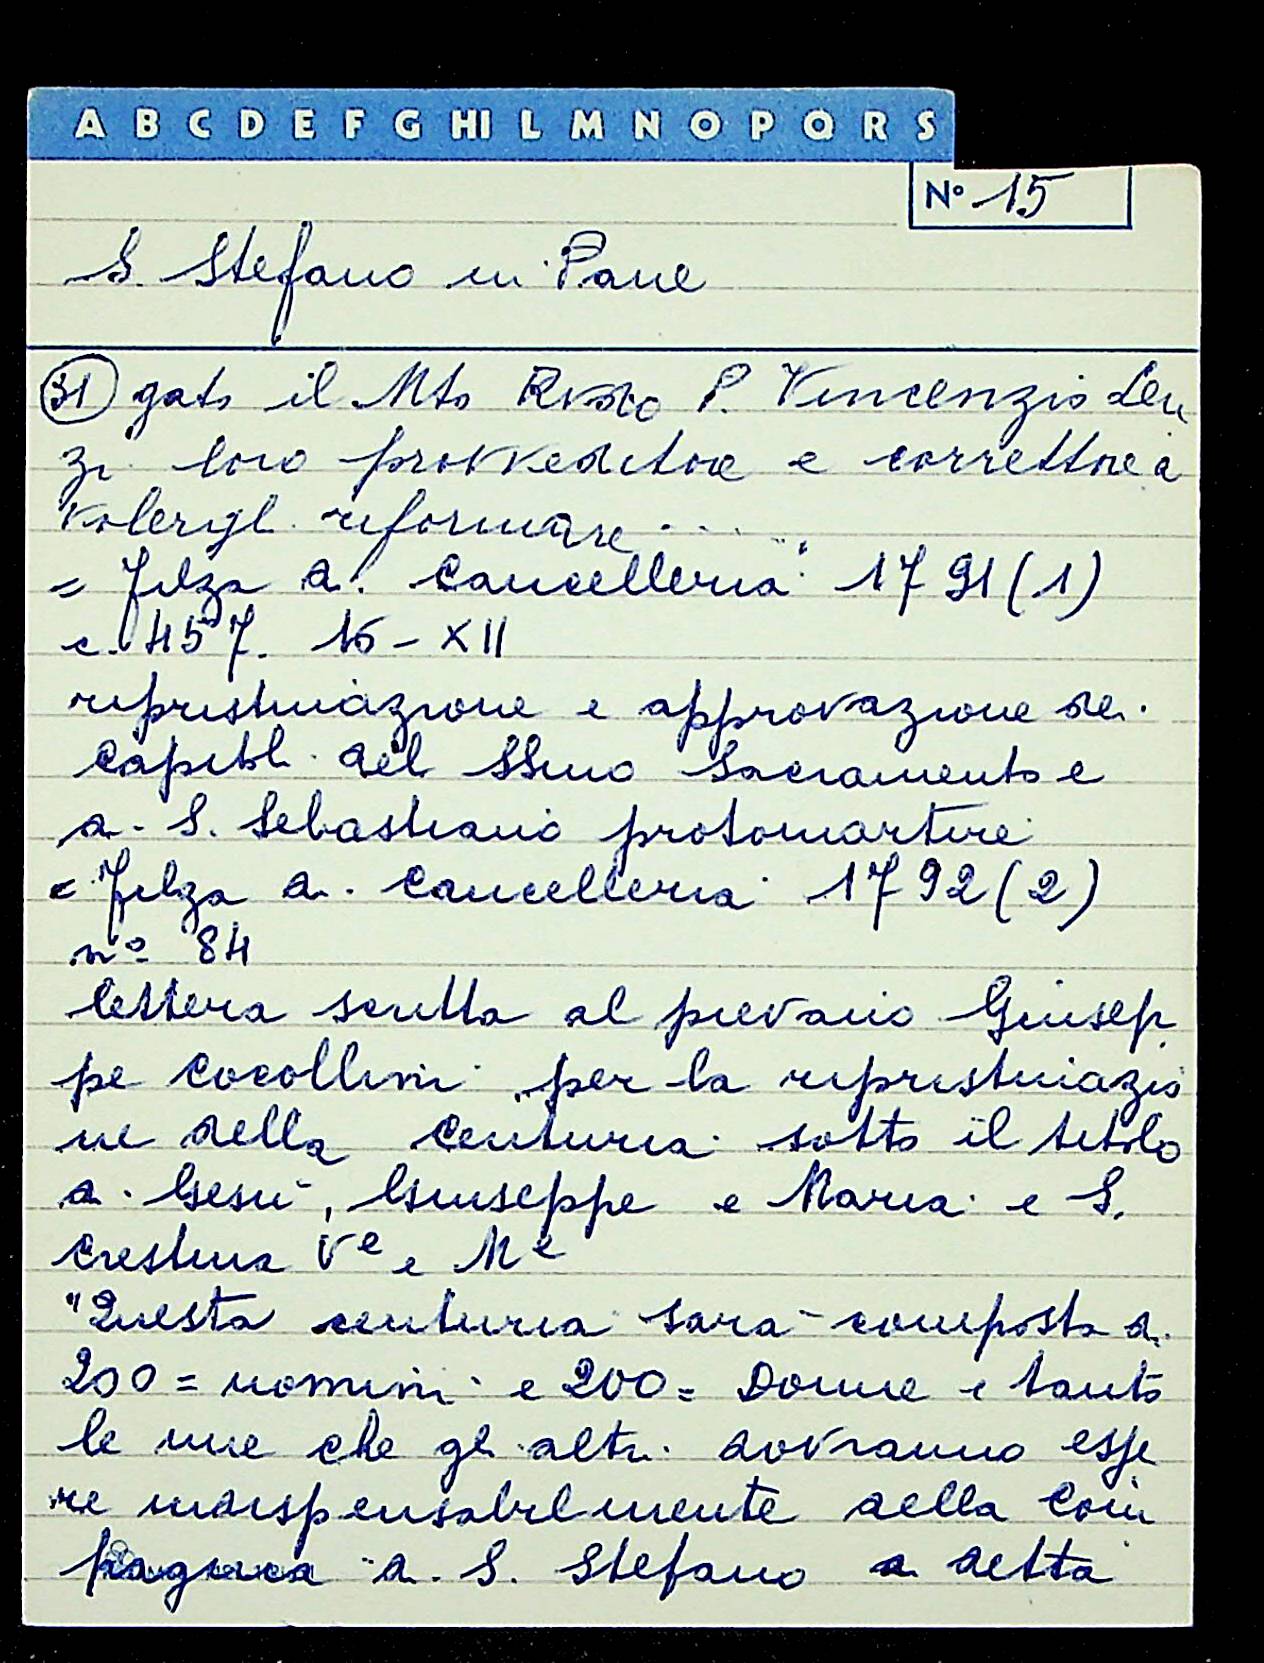 A B C D E F G HI L M N O P Q R S
N° 15
S. Stefano in Pane
31 gato il Mto Rvdo P. Vincenzio Len
zi loro provveditore e correttore a
volergli riformare ....
= Filza di Cancelleria 1791 (1)
c. 457. 16 - XII
ripristinazione e approvazione dei
capitoli del SSmo Sacramento e
di S. Sebastiano protomartire
= Filza di Cancelleria 1792 (2)
n° 84
lettera scritta al pievano Giusep
pe Cocollini per la ripristinazio
ne della Centuria sotto il titolo
di Gesù, Giuseppe e Maria e S.
Crestina Ve e Me
"Questa centuria sarà composta di
200 = uomini e 200 = Donne e tanto
le une che gli altri dovranno esse
re indispensabilmente della Com
pagnia di S. Stefano di detta